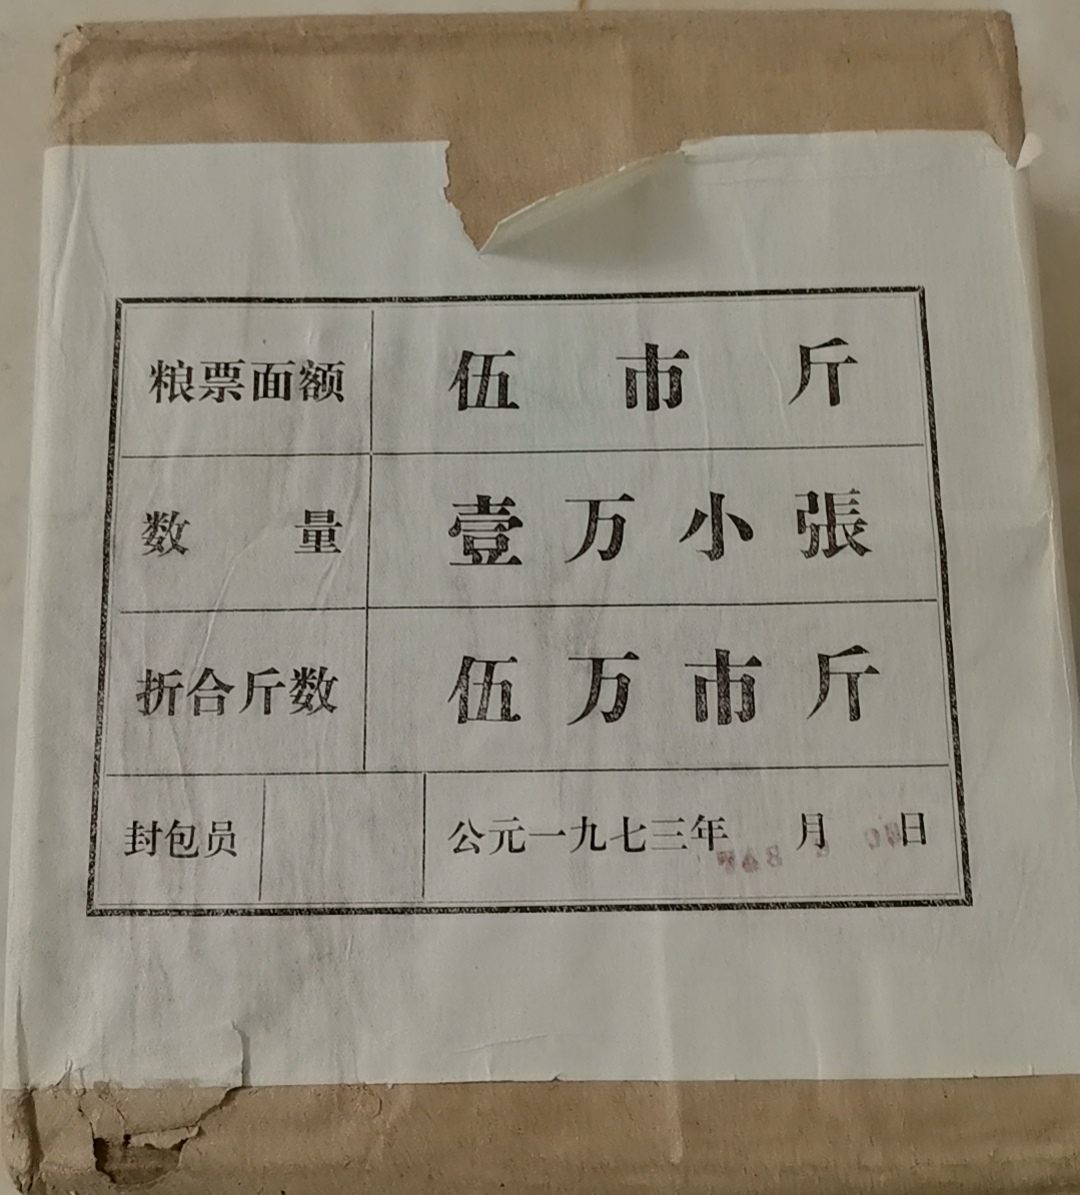 粮票面额 伍市斤
数量 壹万小張
折合斤数 伍万市斤
封包员 公元一九七三年 月 日